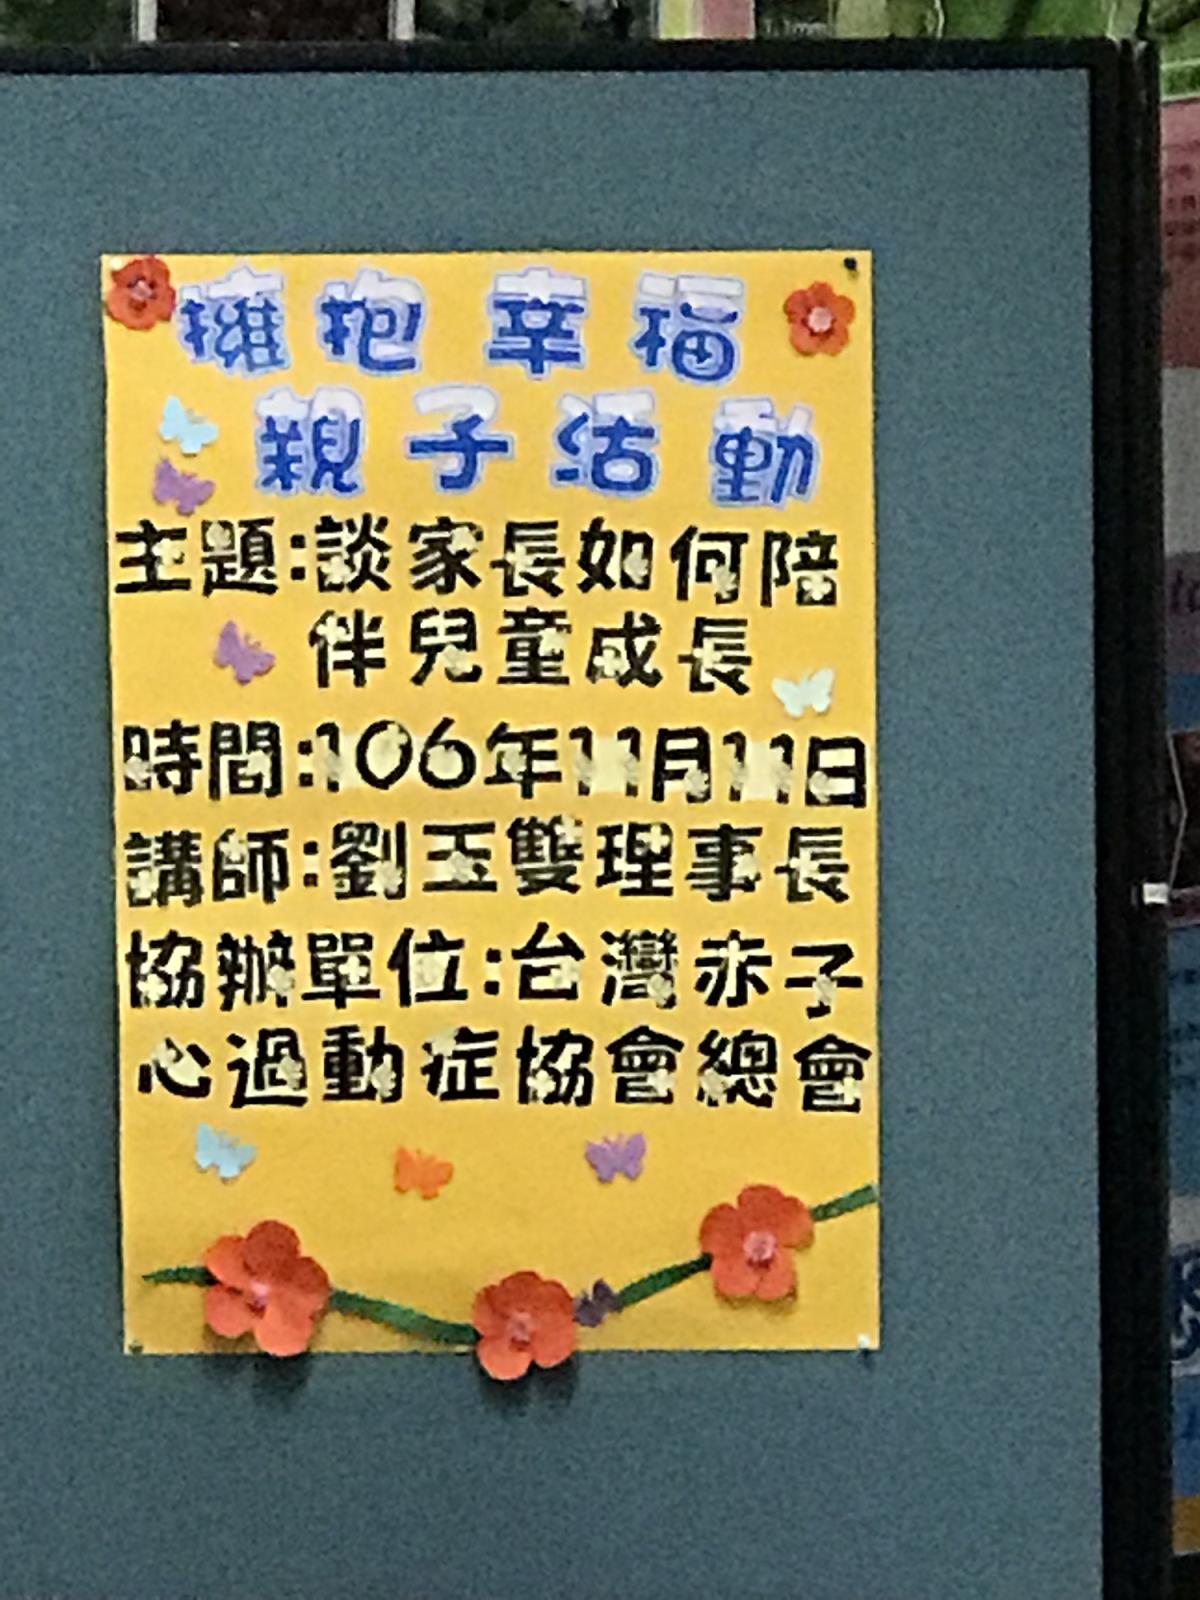 擁抱幸福
親子活動
主題:談家長如何陪
伴兒童成長
時間:106年11月11日
講師:劉玉雙理事長
協辦單位:台灣赤子
心過動症協會總會